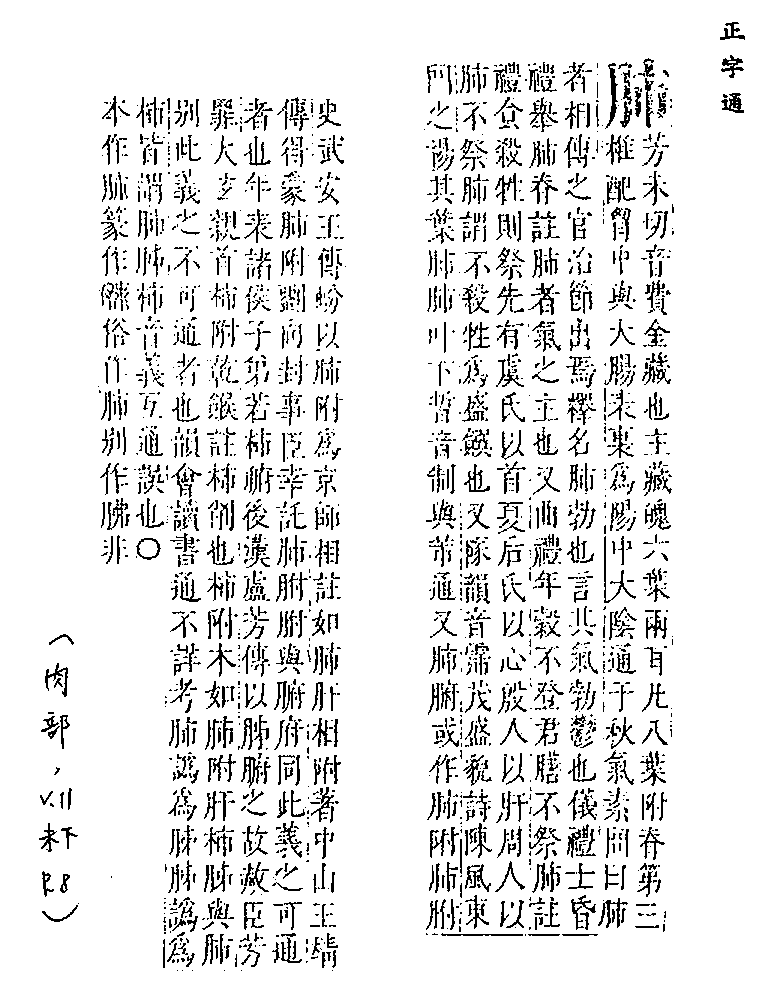 正字通
肺 芳未切音費金藏也主藏魄六葉兩耳凡八葉附脊第三
椎配胷中與大腸表裏爲陽中大陰通于秋氣素問曰肺
者相傳之官治節出焉釋名肺勃也言其氣勃鬱也儀禮士昏
禮舉肺脊註肺者氣之主也又曲禮年穀不登君膳不祭肺註
禮食殺牲則祭先有虞氏以首夏后氏以心殷人以肝周人以
肺不祭肺謂不殺牲爲盛饌也又隊韻音霈茂盛貌詩陳風東
門之楊其葉肺肺叶下晢音制與芾通又肺腑或作肺附肺胕
史武安王傳蚡以肺附爲京師相註如肺肝相附著中山王精
傳得蒙肺附劉向封事臣幸託肺胕胕與腑府同此義之可通
者也年表諸侯子弟若柿腑後漢盧芳傳以肺腑之故赦臣芳
罪大玄親首柿附乾餱註柿削也柿附木如肺附肝柿肺與肺
别此義之不可通者也韻會讀書通不詳考肺譌爲脨脨譌爲
柿皆謂肺肺柿音義互通誤也〇
本作肺篆作𦟀俗作肺别作胇非
(肉部,v.11
未下
P.8)